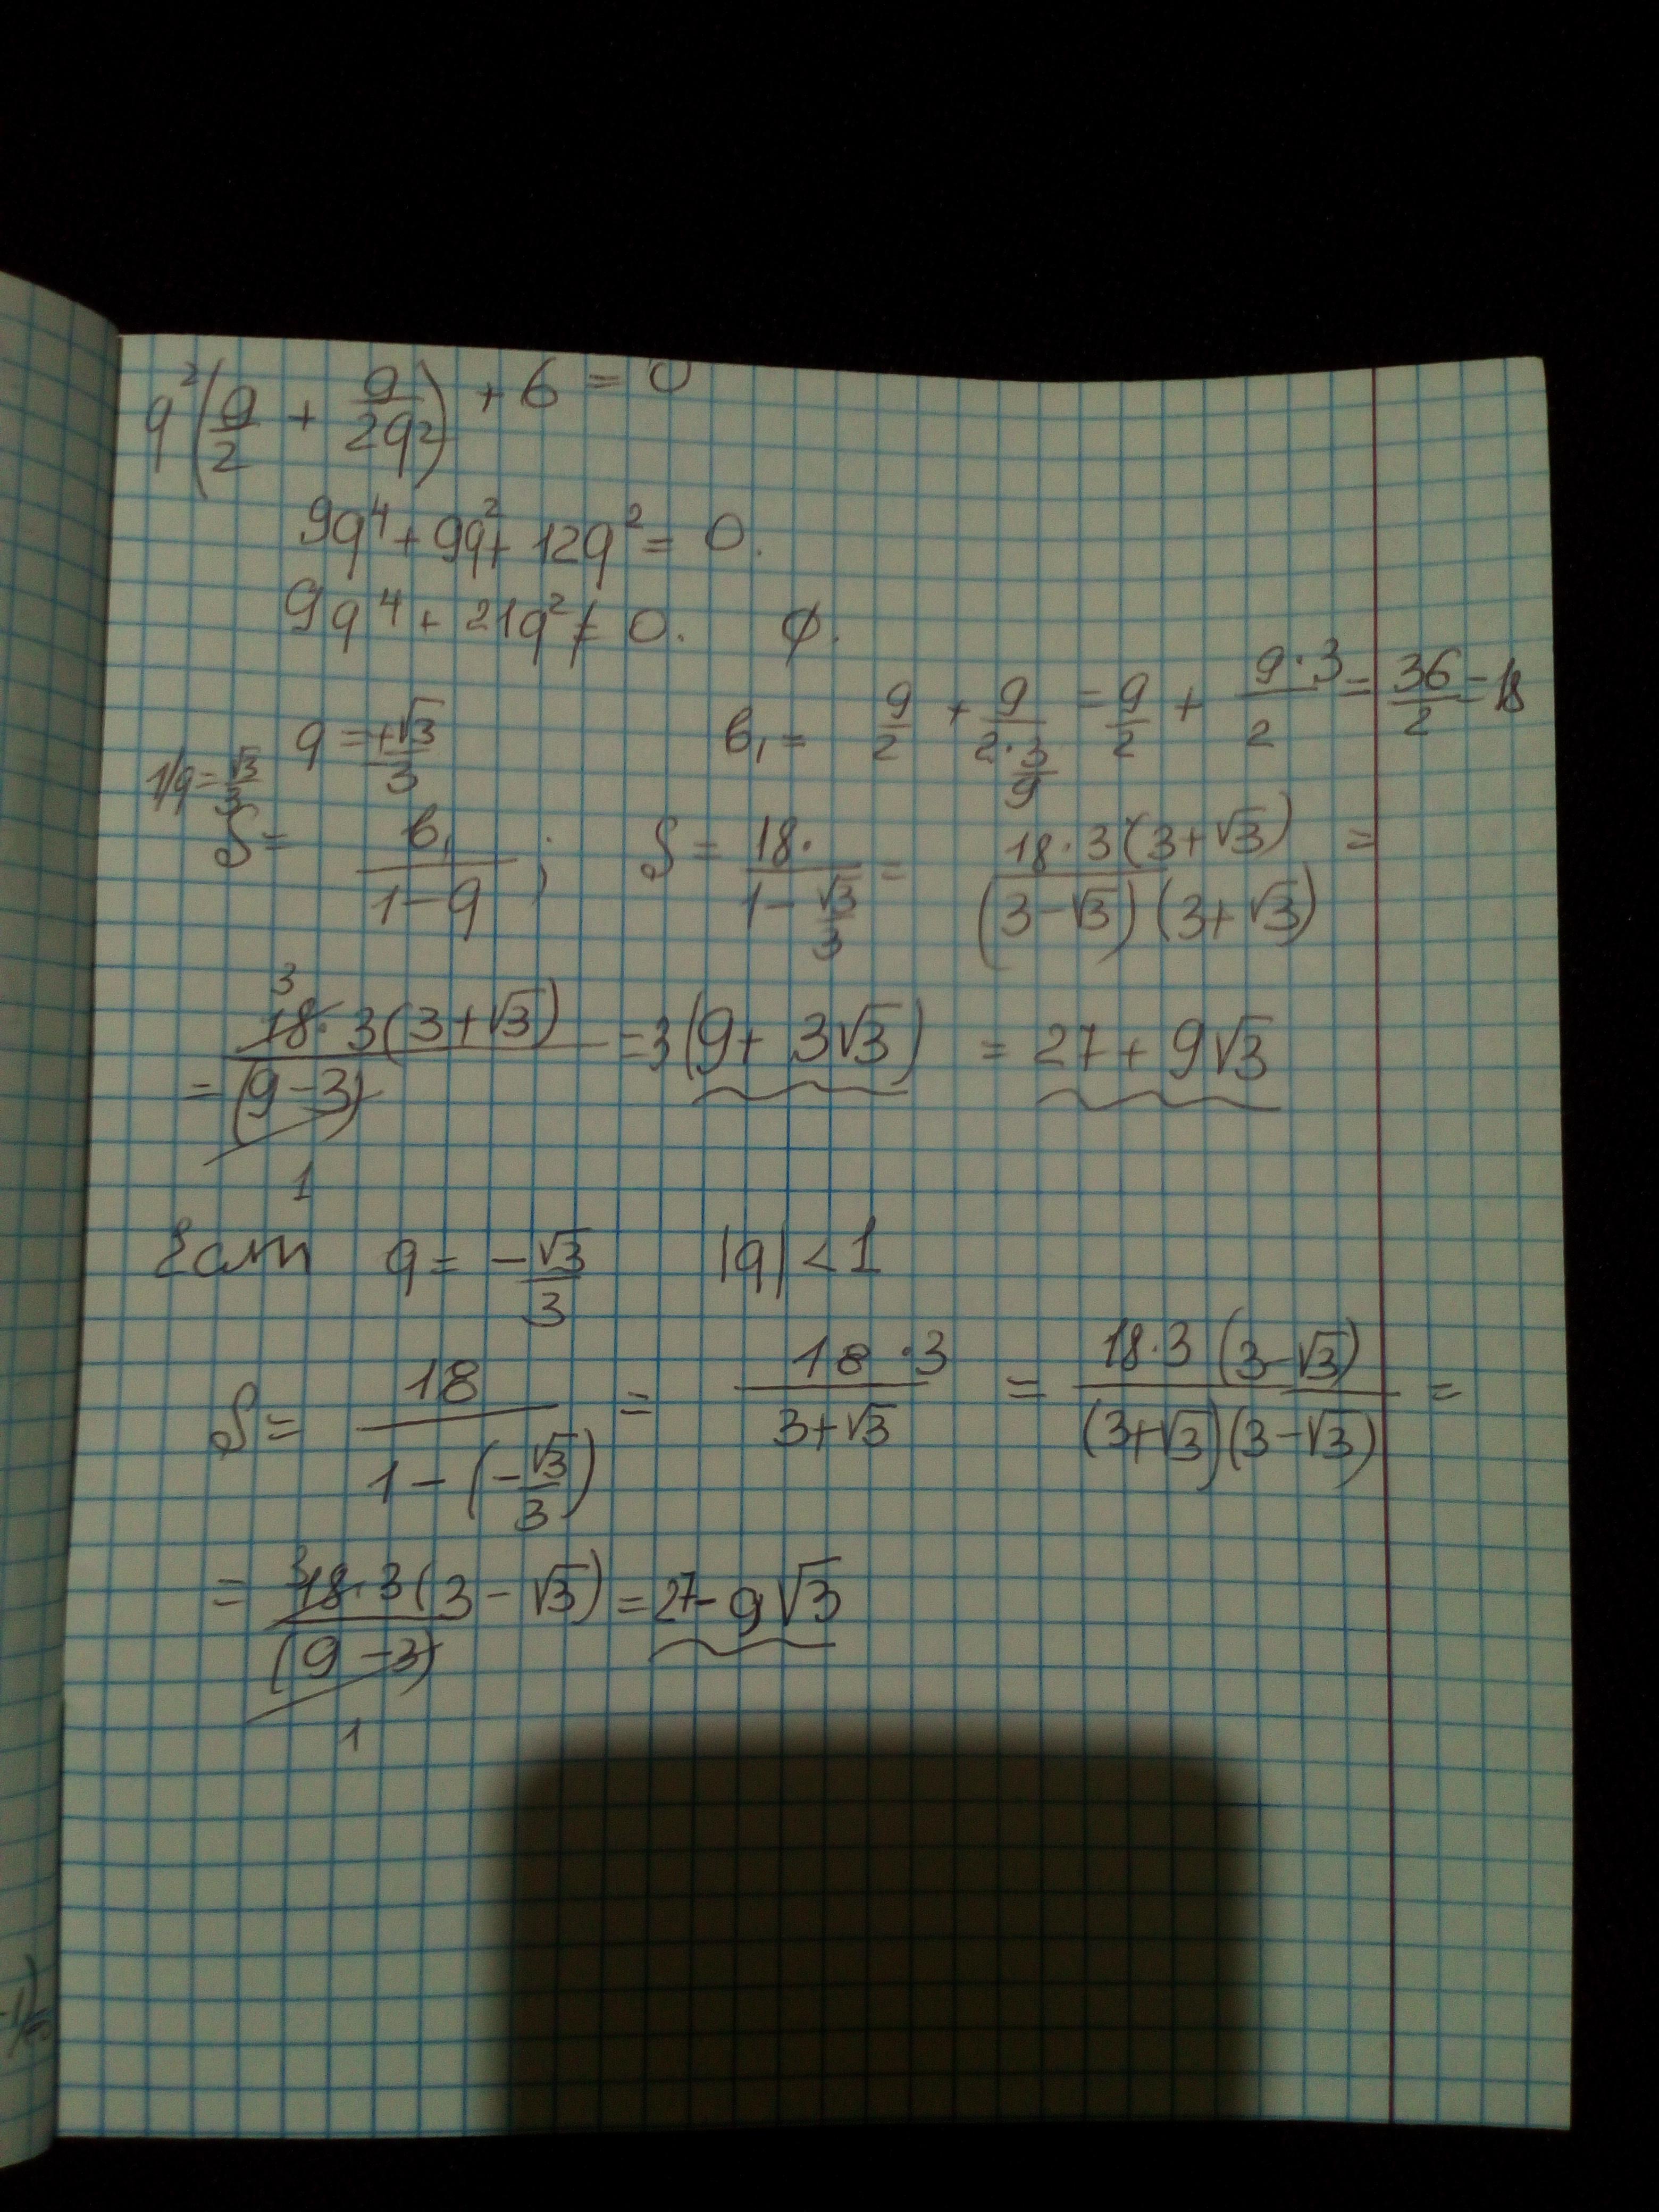 q²(9/2 + 9/2q²) + 6 = 0
9q⁴ + 9q² + 12q² = 0.
9q⁴ + 21q² ≠ 0. ∅.
q = ±√3/3 в₁ = 9/2 + 9/(2·3/9) = 9/2 + 9·3/2 = 36/2 = 18
1/q = √3/3
S = в₁/(1-q) ; S = 18·/(1-√3/3) = 18·3(3+√3)/((3-√3)(3+√3)) =
= 18·3(3+√3)/(9-3) = 3(9+3√3) = 27+9√3
3
1
Если q = -√3/3 |q| < 1
S = 18/(1-(-√3/3)) = 18·3/(3+√3) = 18·3(3-√3)/((3+√3)(3-√3)) =
= 18·3(3-√3)/(9-3) = 27-9√3
3
1